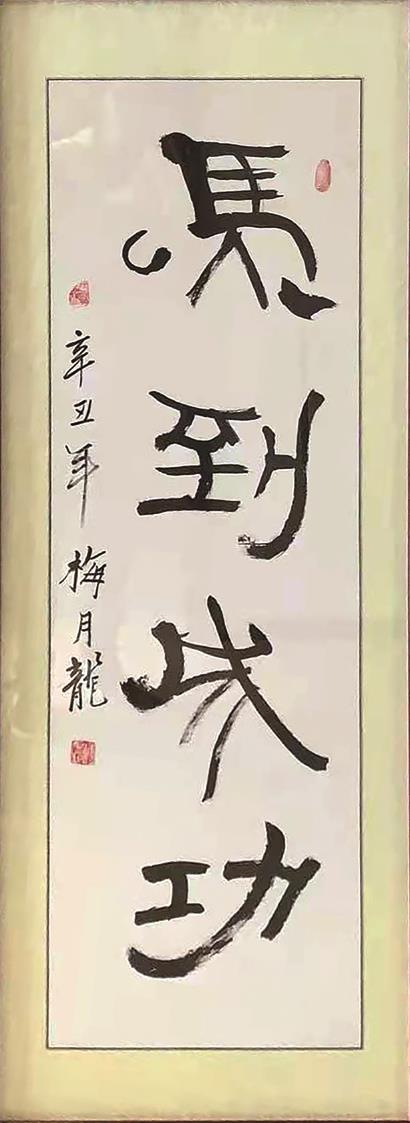 馬到成功
辛丑年 梅月龍